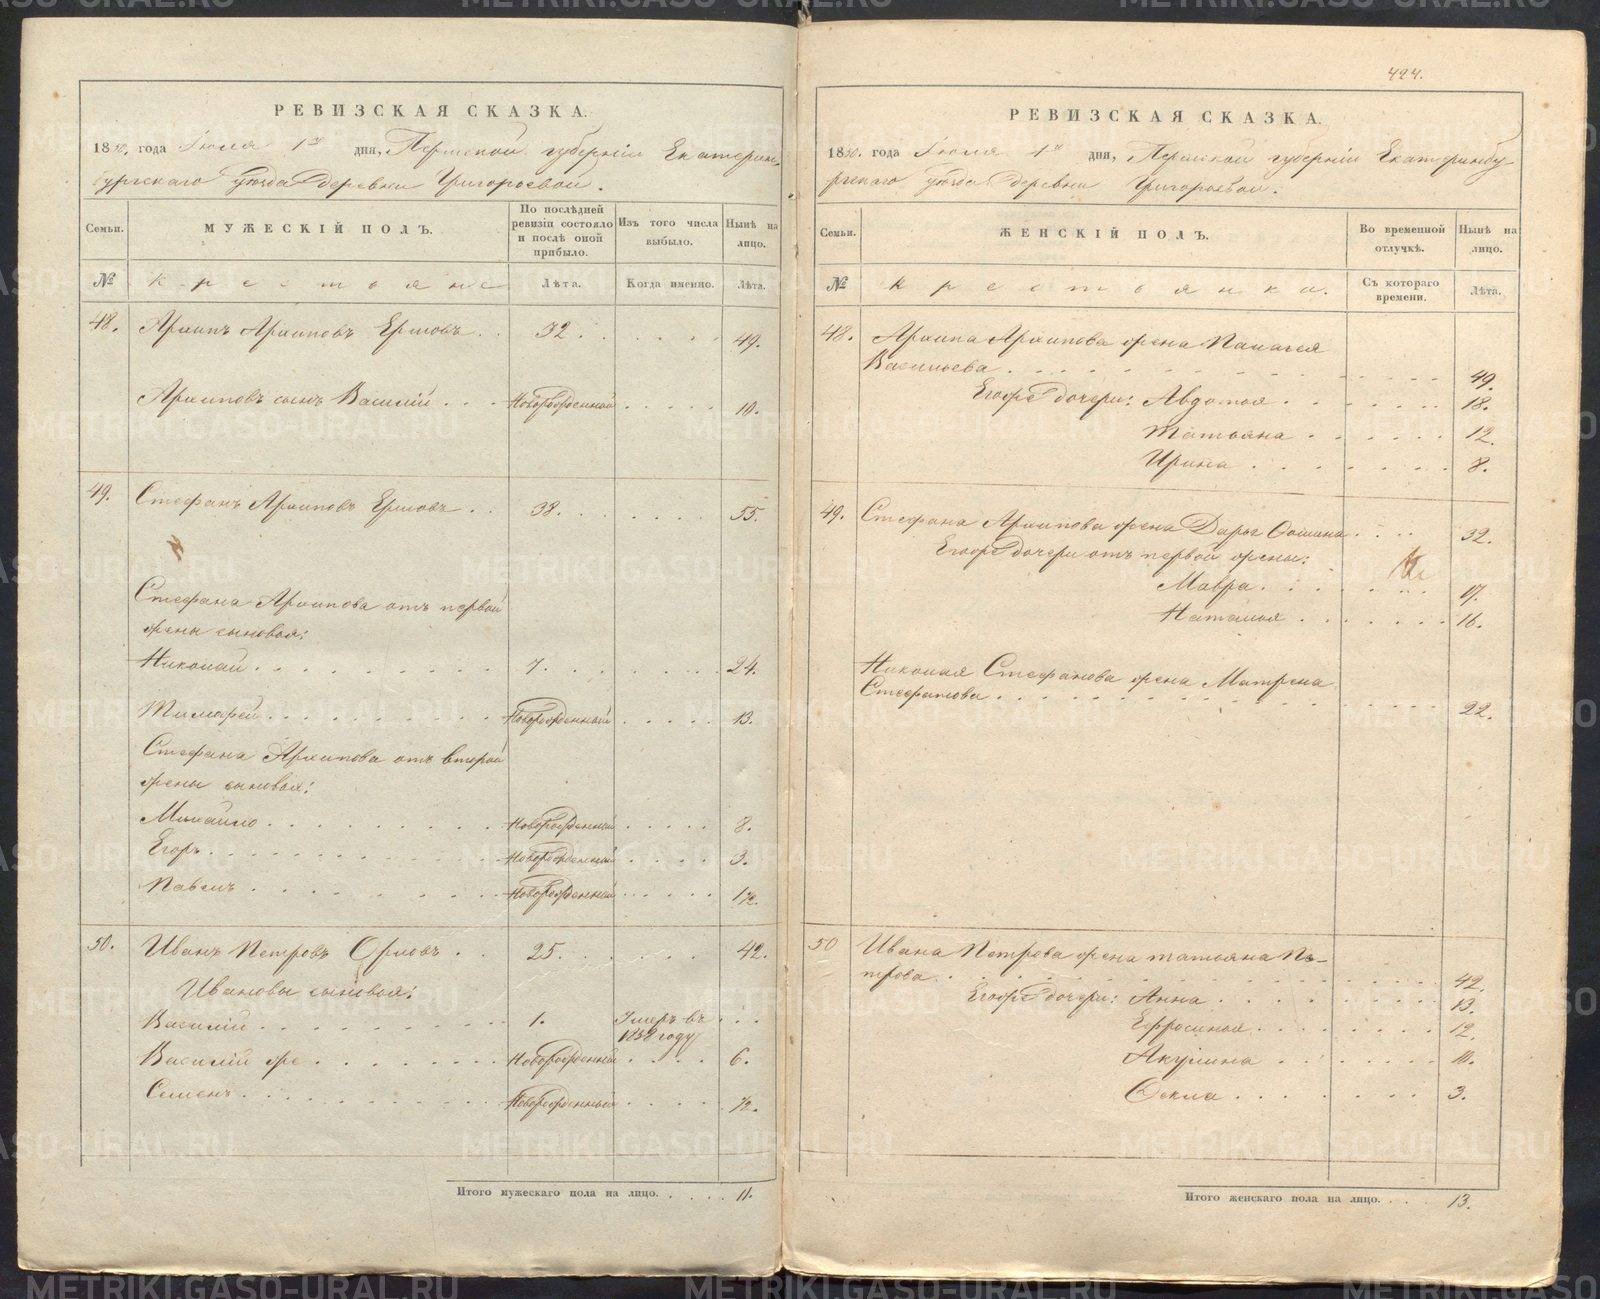 РЕВИЗСКАЯ СКАЗКА.
1850. года Июля 1го дня, Пермской губерніи Екатерин-
бургскаго уѣзда Деревни Григорьевой.
Семьи.
МУЖЕСКІЙ ПОЛЪ.
По послѣдней ревизіи состояло и послѣ оной прибыло.
Изъ того числа выбыло.
Нынѣ на лицо.
№
Крестьяне
Лѣта.
Когда именно.
Лѣта.
48. Архипъ Архиповъ Ершовъ 32. 49.
Архиповъ сынъ Василій Новорожденный 10.
49. Стефанъ Архиповъ Ершовъ 38. 55.
Стефана Архипова отъ первой
жены сыновья:
Николай 7. 24.
Тимофей Новорожденный 13.
Стефана Архипова отъ второй
жены сыновья:
Михайло Новорожденный 8.
Егоръ Новорожденный 3.
Павелъ Новорожденный 1 1/2.
50. Иванъ Петровъ Орловъ 25. 42.
Ивановы сыновья:
Василій 1. Умеръ въ
1838 году
Василій же Новорожденный 6.
Семенъ Новорожденный 1/2.
Итого мужескаго пола на лицо. 11.
424.
РЕВИЗСКАЯ СКАЗКА.
1850. года Июля 1го дня, Пермской губерніи Екатеринбу
ргскаго уѣзда Деревни Григорьевой.
Семьи.
ЖЕНСКІЙ ПОЛЪ.
Во временной отлучкѣ.
Нынѣ на лицо.
№
Крестьянка.
Съ котораго времени.
Лѣта.
48. Архипа Архипова жена Палагея
Васильева 49.
Его же дочери: Авдотья 18.
Татьяна 12.
Ирина 8.
49. Стефана Архипова жена Дарья 32.
Его же дочери отъ первой жены:
Мавра 17.
Наталья 16.
Николая Стефанова жена Матрена
Стефанова 22.
50 Ивана Петрова жена татьяна Пе-
трова 42.
Его же дочери: Анна 13.
Ефросинья 12.
Акулина 10.
Фекла 3.
Итого женскаго пола на лицо. 13.
METRIKI.GASO-URAL.RU